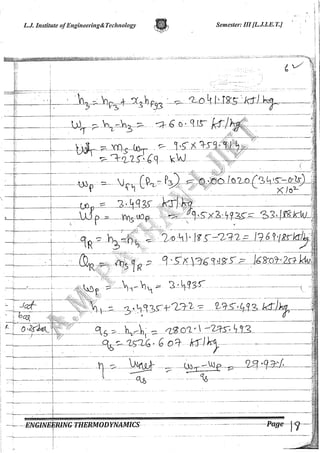 L.J. Institute of Engineering&Technology Semester: III [L.J.I.E.T.]
h3 = hf3 + x3 hfg3 = 2041.185 kJ/kg
ωT = h2-h3 = 760.915 kJ/kg
= ms ωT = 9.5 x 759.914
= 7225.69 kW
ωp = Vf4 (P2-P3) = 0.001020 (34.5-0.25) x10²
ωp = 3.4935 kJ/kg
Wp = ms ωp = 9.5x3.4935 = 33.18 kW
qR = h3-h4 = 2041.185-272 = 1769.185 kJ/kg
QR = ms qR = 9.5 x 1769.185 = 16807.257 kW
ωp = h1-h4 = 3.4935
h1 = 3.4935+272 = 275.493 kJ/kg
qs = h2-h1 = 2802.1-275.493
qs = 2526.607 kJ/kg
η = Wnet/qs = ωT-ωp/qs = 29.97%
A.M.P
LJIET
ENGINEERING THERMODYNAMICS Page 19